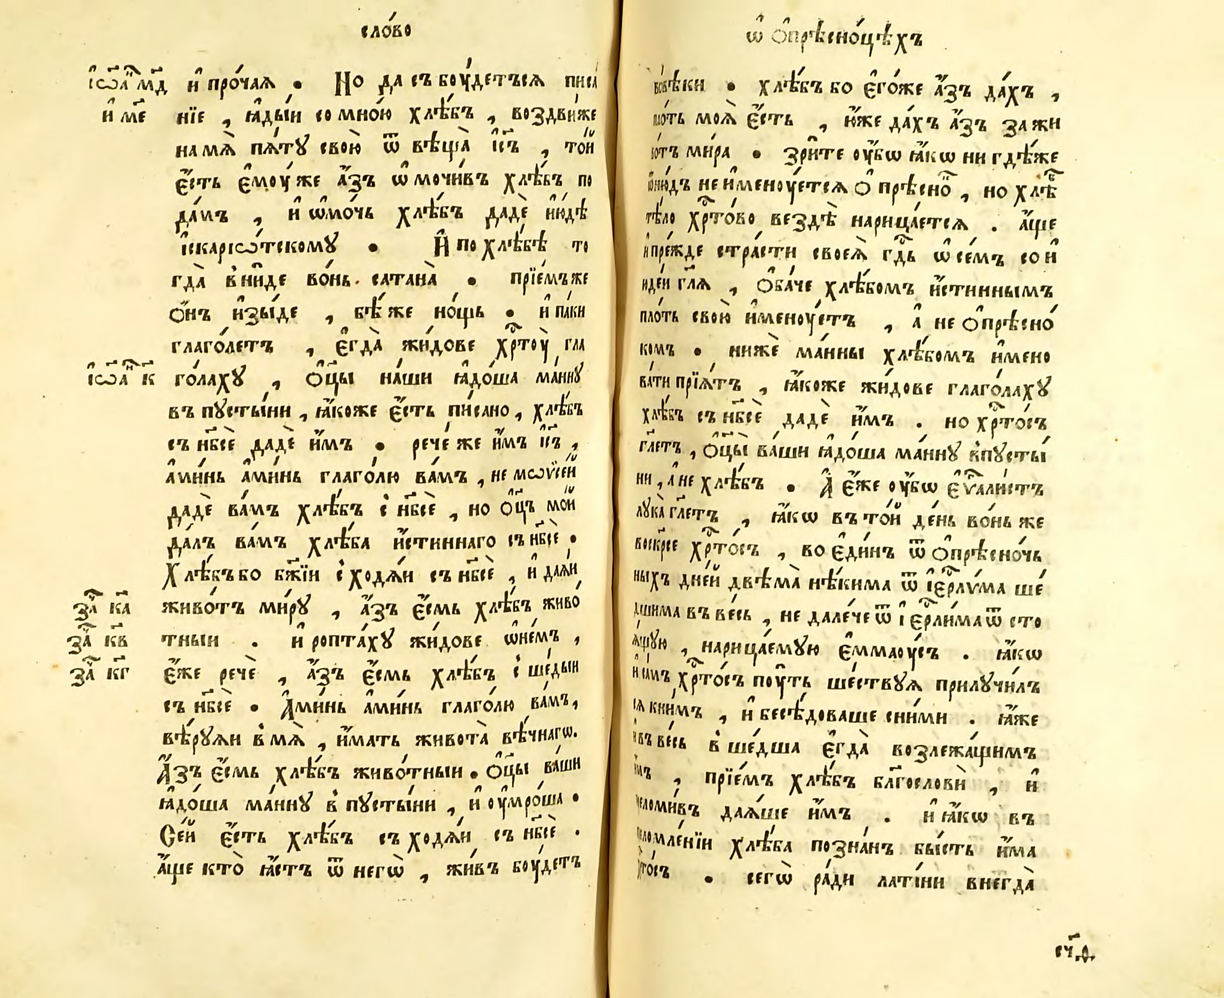 сло́во
і҆ѡа҃ мд҃ и҆ про́чаѧ . Но да съ боу́детъсѧ писа
и҆ ме҃ ніе , ꙗ҆ды́и со мно́ю хлѣ́бъ , воздви́же
на мѧ̀ пѧ́тꙋ свою̀ ѿ вѣща̀ і҆с҃ъ , то́и
є҆́сть є҆моу́ же а҆́зъ ѡ҆мочи́въ хлѣ́бъ по
да́мъ , и҆ ѡ҆мо́чь хлѣ́бъ дадѐ и҆ю́дѣ
і҆скарїѡ́тскомꙋ . И҆ по хлѣ́бѣ то
гда̀ вни́де во́нь сатана̀ . прїе́мъ же
ѻ҆́нъ и҆зы́де , бѣ́ же но́щь . и҆ па́ки
глаго́летъ , є҆гда̀ жи́дове хр҇то́у гла
і҆ѡа҃ к҃ го́лахꙋ , ѻ҆ц҃ы на́ши ꙗ҆до́ша ма́ннꙋ
въ пꙋсты́ни , ꙗ҆́коже є҆́сть пи́сано , хлѣ́бъ
съ нб҃сѐ дадѐ и҆́мъ . рече́ же и҆́мъ і҆с҃ъ ,
а҆ми́нь а҆ми́нь глаго́лю ва́мъ , не мѡѷсе́и
дадѐ ва́мъ хлѣ́бъ с нб҃сѐ , но ѻ҆ц҃ъ мо́и
да́лъ ва́мъ хлѣ́ба и҆́стиннаго съ нб҃сѐ .
Хлѣ́бъ бо бж҃їи с ходѧ́и съ нб҃сѐ , и҆ даѧ́и
за҃ ка҃ живо́тъ ми́рꙋ , а҆́зъ є҆́смь хлѣ́бъ живо
за҃ кв҃ тныи . и҆ ропта́хꙋ жи́дове ѡ҆не́мъ ,
за҃ кг҃ є҆́же речѐ , а҆́зъ є҆́смь хлѣ́бъ с ше́дыи
съ нб҃сѐ . А҆ми́нь а҆ми́нь глаго́лю ва́мъ ,
вѣ́рꙋѧи в мѧ̀ , и҆́мать живота̀ вѣ́чнагѡ .
А҆́зъ є҆́смь хлѣ́бъ живо́тныи . ѻ҆ц҃ы ва́ши
ꙗ҆до́ша ма́ннꙋ в пꙋсты́ни , и҆ оу҆мро́ша .
Се́и є҆́сть хлѣ́бъ съ ходѧ́и съ нб҃сѐ .
а҆́ще кто̀ ꙗ҆́стъ ѿ негѡ̀ , жи́въ боу́детъ
ѡ҆ ѻ҆прѣсно́цѣхъ
во́вѣки . хлѣ́бъ бо є҆го́же а҆́зъ да́хъ ,
пло́ть моѧ̀ є҆́сть , ю҆́же да́хъ а҆́зъ за жи
во́тъ ми́ра . зри́те оу҆́бѡ ꙗ҆́кѡ ни гдѣ́же
ѿню́дъ не и҆менꙋ́етсѧ ѻ҆прѣсно́ , но хлѣ́
тѣ́ло хр҇то́во вездѣ̀ нарица́етсѧ . а҆́ще
и҆ пре́жде стра́сти своеѧ̀ гдь̀ ѡ҆ се́мъ со и҆
иде́и гл҃ѧ , ѻ҆ба́че хлѣ́бомъ и҆́стиннымъ
пло́ть свою̀ и҆менꙋ́етъ , а҆ не ѻ҆прѣсно́
комъ . нижѐ ма́нны хлѣ́бомъ и҆мено
ва́ти прїѧ́тъ , ꙗ҆́коже жи́дове глаго́лахꙋ
хлѣ́бъ съ нб҃сѐ дадѐ и҆́мъ . но хр҇то́съ
гл҃етъ , ѻ҆ц҃ы̀ ва́ши ꙗ҆до́ша ма́ннꙋ в пꙋсты́
ни , а҆ не хлѣ́бъ . А҆ є҆́же оу҆́бѡ є҆ѵⷢ҇али́стъ
лꙋка̀ гл҃етъ , ꙗ҆́кѡ въ то́и де́нь во́нь же
воскр҃се хр҇то́съ , во є҆ди́нъ ѿ ѻ҆прѣсно́чь
ныхъ дне́и двѣма̀ нѣ́кима ѿ і҆ер҇лѵ́ма ше́
дшима въ ве́сь , не дале́че ѿ і҆ер҇ли́ма ѿ сто
ѧ́щꙋю , нарица́емꙋю є҆ммаоу́съ . ꙗ҆́кѡ
и҆ са́мъ хр҇то́съ поу́ть ше́ствꙋѧ прилꙋчи́лъ
сѧ к ни́мъ , и҆ бесѣ́доваше сни́ми . ꙗ҆́же
и҆ въ ве́сь в ше́дша є҆гда̀ возлежа́щимъ
и҆́мъ , прїе́мъ хлѣ́бъ благословѝ , и҆
преломи́въ даѧ́ше и҆́мъ . и҆ ꙗ҆́кѡ въ
преломле́нїи хлѣ́ба позна́нъ бы́сть и҆́ма
хр҇то́съ . сегѡ̀ ра́ди лати́ни внегда̀
сч҃.ѳ.